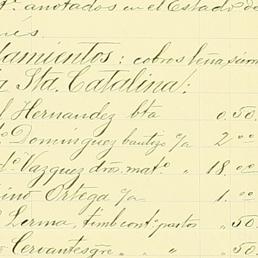 anotados en el Estado de
amientos; cobros
a Sta. Catalina:
l Hernandez bta 0.50.
Dominguez bautizo g/a 2.00
Vazquez dros. mato. " 18.00
ino Ortega g/a 1.00
Lerma, timb. cont. pastos " 50.
Cervantes gre. " " 50.